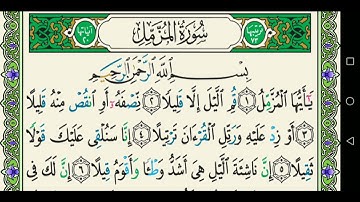 سُورَةُ المُزَّمِّلِ
بِسْمِ اللَّهِ الرَّحْمَٰنِ الرَّحِيمِ
يَٰٓأَيُّهَا ٱلْمُزَّمِّلُ ١ قُمِ ٱلَّيْلَ إِلَّا قَلِيلًا ٢ نِّصْفَهُۥٓ أَوِ ٱنقُصْ مِنْهُ قَلِيلًا
٣ أَوْ زِدْ عَلَيْهِ وَرَتِّلِ ٱلْقُرْءَانَ تَرْتِيلًا ٤ إِنَّا سَنُلْقِى عَلَيْكَ قَوْلًا
ثَقِيلًا ٥ إِنَّ نَاشِئَةَ ٱلَّيْلِ هِىَ أَشَدُّ وَطْـًٔا وَأَقْوَمُ قِيلًا ٦ إِنَّ لَكَ فِى